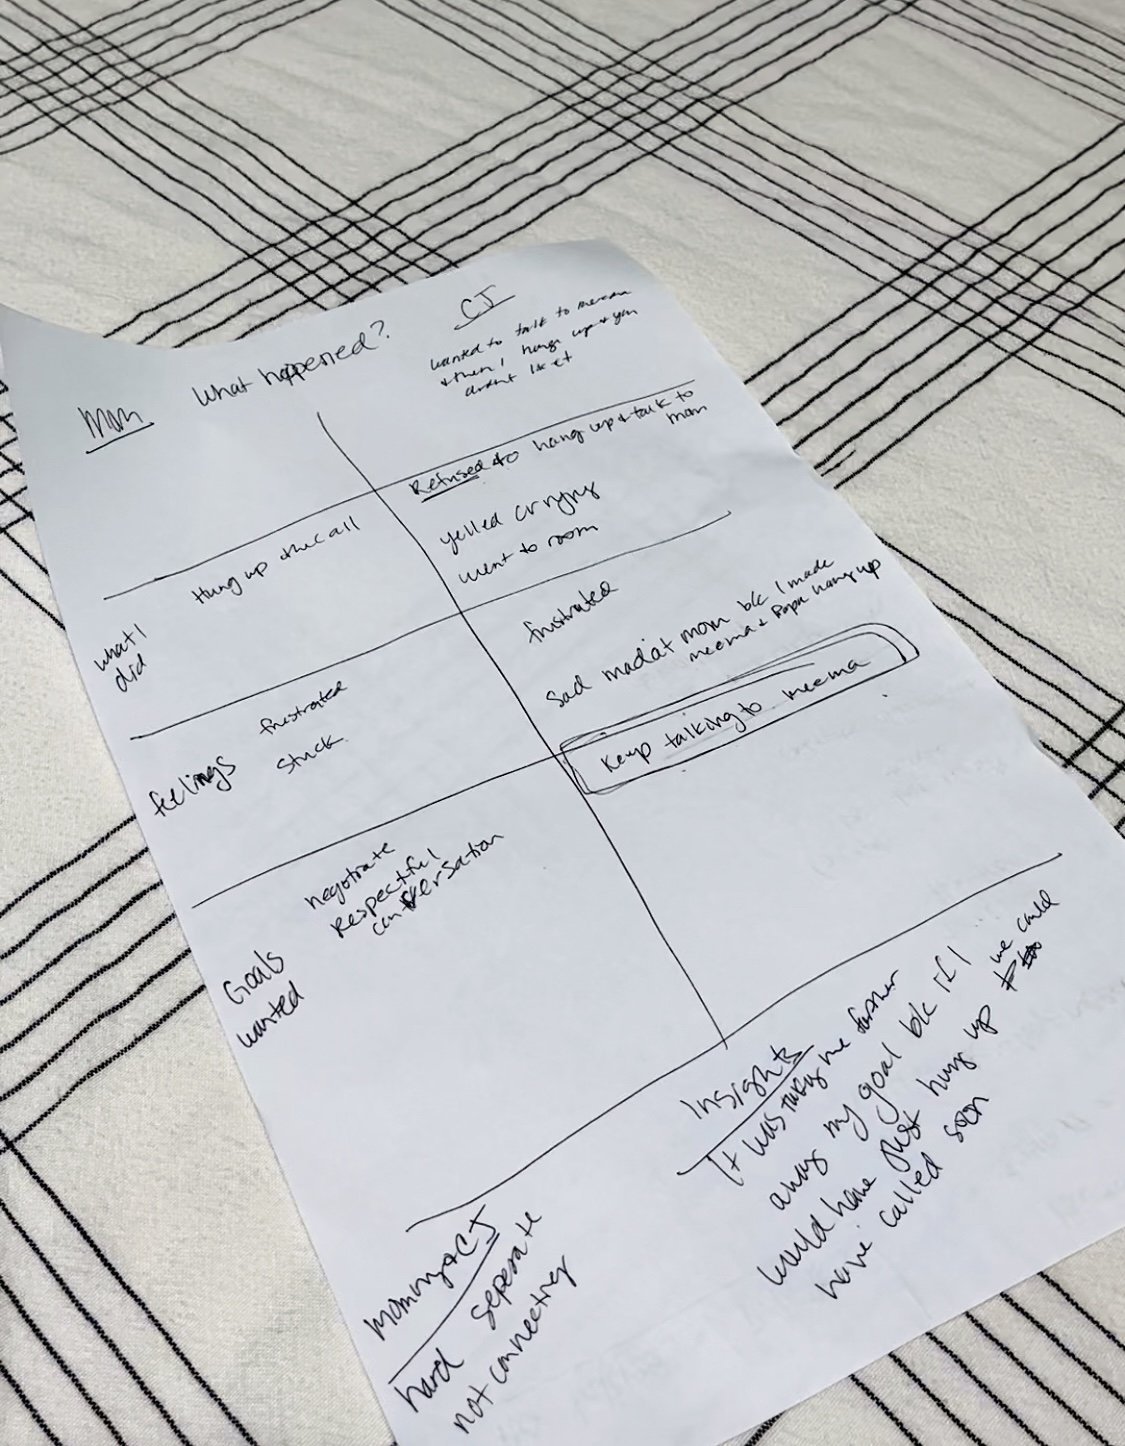 What happened?
CJ
Mom
wanted to talk to meema
& then I hang up & you
didnt like it
Refused to hang up & talk to
mom
yelled crying
went to room
Hung up the call
what I
did
frustrated
sad mad at mom b/c I made
meema & Papa hang up
feelings
frustrated
stuck
Keep talking to meema
Goals
wanted
negotiate
Respectful
conversation
Insights
It was taking me farther
away my goal b/c if I we could
would have just hung up
have called soon
Mommy & CJ
hard seperate
not connecting